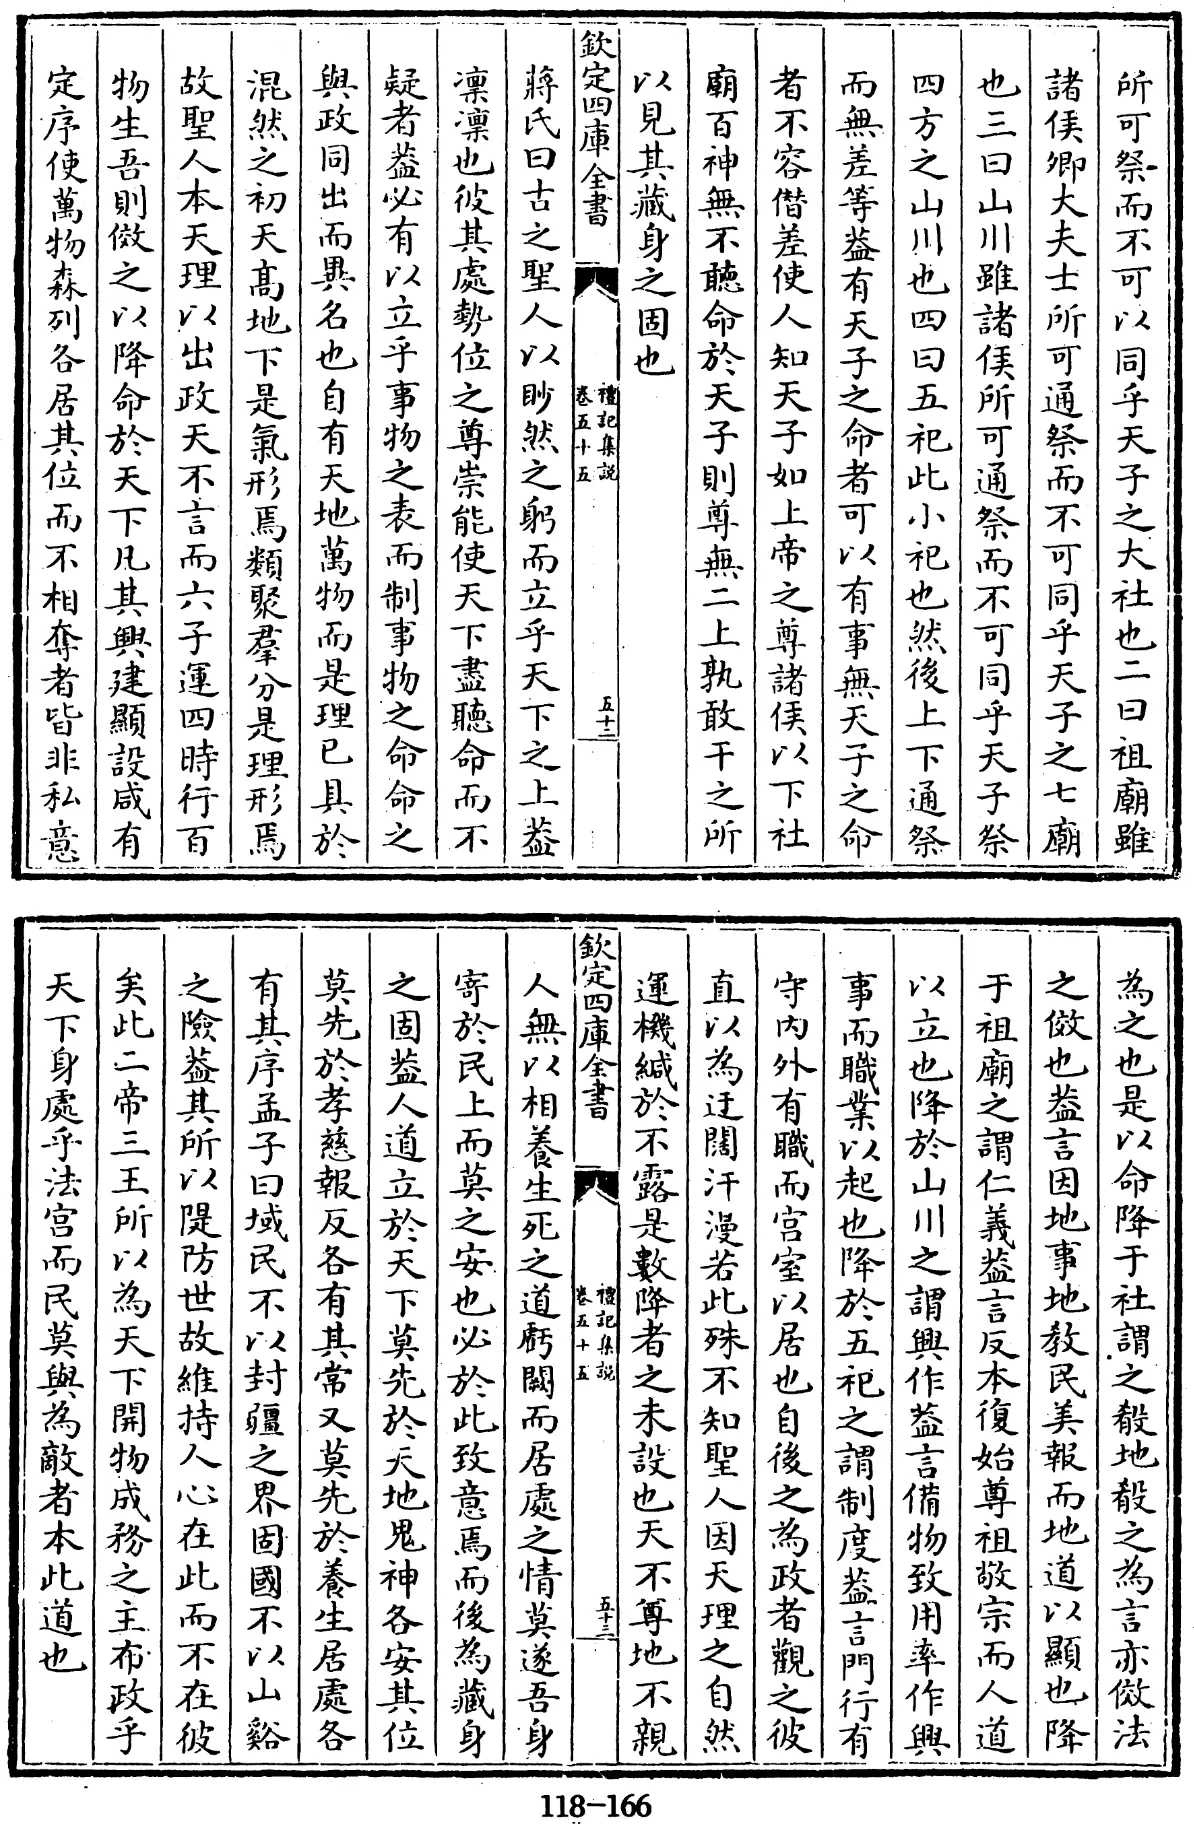 所可祭而不可以同乎天子之大社也二曰祖廟雖
諸侯卿大夫士所可通祭而不可同乎天子之七廟
也三曰山川雖諸侯所可通祭而不可同乎天子祭
四方之山川也四曰五祀此小祀也然後上下通祭
而無差等葢有天子之命者可以有事無天子之命
者不容僭差使人知天子如上帝之尊諸侯以下社
廟百神無不聽命於天子則尊無二上孰敢干之所
以見其藏身之固也
欽定四庫全書
禮記集説
卷五十五
五十二
蔣氏曰古之聖人以眇然之躬而立乎天下之上葢
凛凛也彼其處勢位之尊崇能使天下盡聽命而不
疑者葢必有以立乎事物之表而制事物之命命之
與政同出而異名也自有天地萬物而是理已具於
混然之初天髙地下是氣形焉類聚羣分是理形焉
故聖人本天理以出政天不言而六子運四時行百
物生吾則傚之以降命於天下凡其興建顯設咸有
定序使萬物森列各居其位而不相奪者皆非私意
為之也是以命降于社謂之殽地殽之為言亦傚法
之傚也葢言因地事地教民美報而地道以顯也降
于祖廟之謂仁義葢言反本復始尊祖敬宗而人道
以立也降於山川之謂興作葢言備物致用率作興
事而職業以起也降於五祀之謂制度葢言門行有
守内外有職而宫室以居也自後之為政者觀之彼
直以為迂闊汗漫若此殊不知聖人因天理之自然
運機緘於不露是數降者之未設也天不尊地不親
欽定四庫全書
禮記集説
卷五十五
五十三
人無以相養生死之道虧闕而居處之情莫遂吾身
寄於民上而莫之安也必於此致意焉而後為藏身
之固葢人道立於天下莫先於天地鬼神各安其位
莫先於孝慈報反各有其常又莫先於養生居處各
有其序孟子曰域民不以封疆之界固國不以山谿
之險葢其所以隄防世故維持人心在此而不在彼
矣此二帝三王所以為天下開物成務之主布政乎
天下身處乎法宫而民莫與為敵者本此道也
118-166